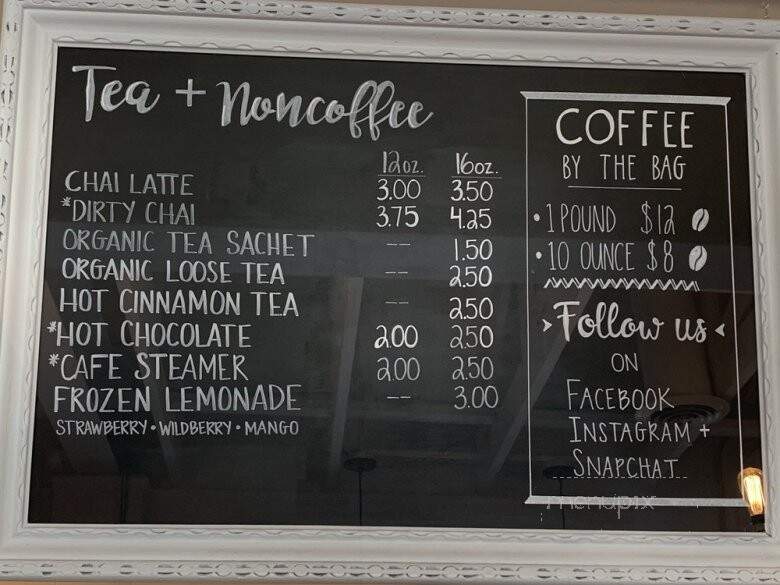 Tea + Noncoffee
12oz. 16oz.
CHAI LATTE 3.00 3.50
*DIRTY CHAI 3.75 4.25
ORGANIC TEA SACHET -- 1.50
ORGANIC LOOSE TEA -- 2.50
HOT CINNAMON TEA -- 2.50
*HOT CHOCOLATE 2.00 2.50
*CAFE STEAMER 2.00 2.50
FROZEN LEMONADE -- 3.00
STRAWBERRY • WILDBERRY • MANGO
COFFEE
BY THE BAG
• 1 POUND $12
• 10 OUNCE $8
Follow us
ON
FACEBOOK
INSTAGRAM +
SNAPCHAT
menupix